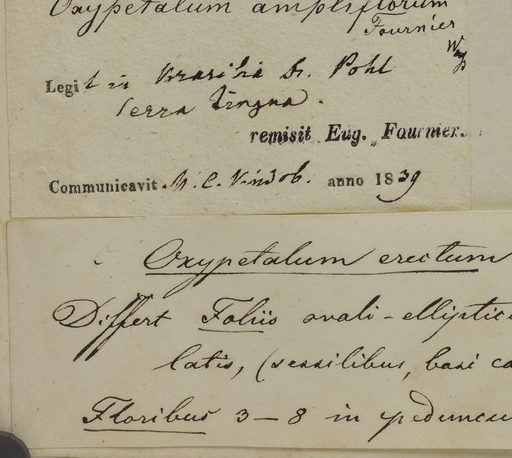 Oxypetalum ampliflorum
Fournier
Legit in Brasilia Dr. Pohl
Serra
remisit Eug. Fournier.
Communicavit M. C. Vindob. anno 1839
Oxypetalum erectum
Differt Foliis ovali-elliptici
latis, (sessilibus, basi co
Floribus 3-8 in peduncu